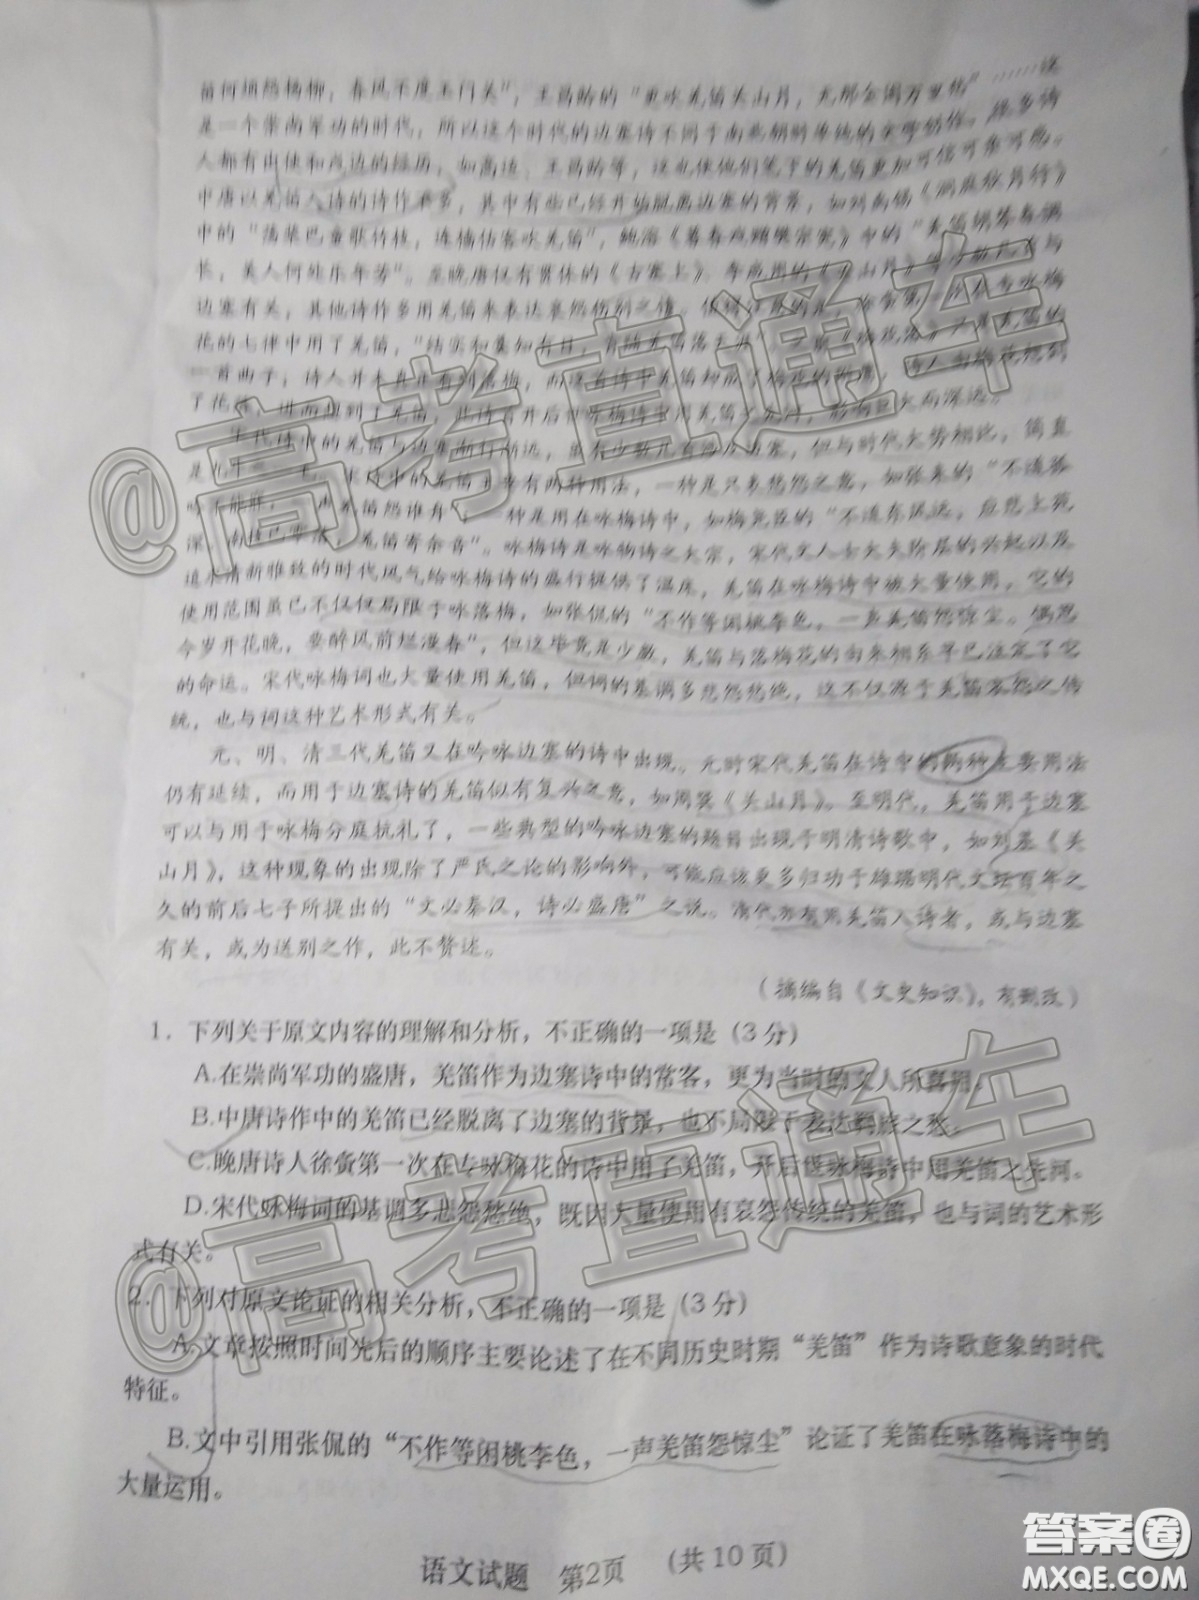 笛何须怨杨柳，春风不度玉门关”，王昌龄的“更吹羌笛关山月，无那金闺万里愁”……这
是一个崇尚军功的时代，所以这个时代的边塞诗不同于南北朝时
人都有出使和戍边的经历，如高适、王昌龄等，这也使他们笔下的羌笛更加可信可亲可感。
中唐以羌笛入诗的诗作不多，其中有些已经开始脱离边塞的背景，如刘禹锡《洞庭秋月行》
中的“荡桨巴童歌竹枝，连樯估客吹羌笛”，鲍溶《暮春戏赠樊宗宪》中的“羌笛胡琴春调
长，美人何处乐年芳”。至晚唐仅有贯休的《古塞上》
边塞有关，其他诗作多用羌笛来表达哀怨伤别之情。
花的七律中用了羌笛，“结实和羹知有日，
一首曲子，诗人并未真正看到落梅，
了花落，进而想到了羌笛，此诗首开后世咏梅诗中用羌笛之先河，影响巨大而深远。
宋代诗中的羌笛与边塞渐行渐远，虽有少数几首涉及边塞，但与时代大势相比，简直
是九牛一毛。宋诗中的羌笛主要有两种用法，一种是只多愁怨之意，如张耒的“不道孤
一种是用在咏梅诗中，如梅尧臣的“不道东风远，应悲上苑
深。南枝已零落，羌笛寄余音”。咏梅诗是咏物诗之大宗，宋代文人士大夫阶层的兴起以及
追求清新雅致的时代风气给咏梅诗的盛行提供了温床，羌笛在咏梅诗中被大量使用，它的
使用范围虽已不仅仅局限于咏落梅，如张侃的“不作等闲桃李色，一声羌笛怨惊尘。偶忽
今岁开花晚，要醉风前烂漫春”，但这毕竟是少数，羌笛与落梅花的向来相系早已注定了它
的命运。宋代咏梅词也大量使用羌笛，但词的基调多悲怨愁绝，这不仅源于羌笛哀怨之传
统，也与词这种艺术形式有关。
元、明、清三代羌笛又在吟咏边塞的诗中出现。元时宋代羌笛在诗中的两种主要用法
仍有延续，而用于边塞诗的羌笛似有复兴之意，如周巽《关山月》。至明代，羌笛用于边塞
可以与用于咏梅分庭抗礼了，一些典型的吟咏边塞的题目出现于明清诗歌中，如刘基《关
山月》，这种现象的出现除了严氏之论的影响外，可能应该更多归功于雄踞明代文坛百年之
久的前后七子所提出的“文必秦汉，诗必盛唐”之说。清代亦有用羌笛入诗者，或与边塞
有关，或为送别之作，此不赘述。
（摘编自《文史知识》，有删改）
1．下列关于原文内容的理解和分析，不正确的一项是（3分）
A.在崇尚军功的盛唐，羌笛作为边塞诗中的常客，更为当时的文人所喜用。
B.中唐诗作中的羌笛已经脱离了边塞的背景，也不局限于表达羁旅之愁。
C.晚唐诗人徐夤第一次在专咏梅花的诗中用了羌笛，开后世咏梅诗中用羌笛之先河。
D.宋代咏梅词的基调多悲怨愁绝，既因大量使用有哀怨传统的羌笛，也与词的艺术形
式有关。
2．下列对原文论证的相关分析，不正确的一项是（3分）
A.文章按照时间先后的顺序主要论述了在不同历史时期“羌笛”作为诗歌意象的时代
特征。
B.文中引用张侃的“不作等闲桃李色，一声羌笛怨惊尘”论证了羌笛在咏落梅诗中的
大量运用。
语文试题 第2页 （共10页）
@高考直通车
@高考直通车
答案圈
MXQE.COM